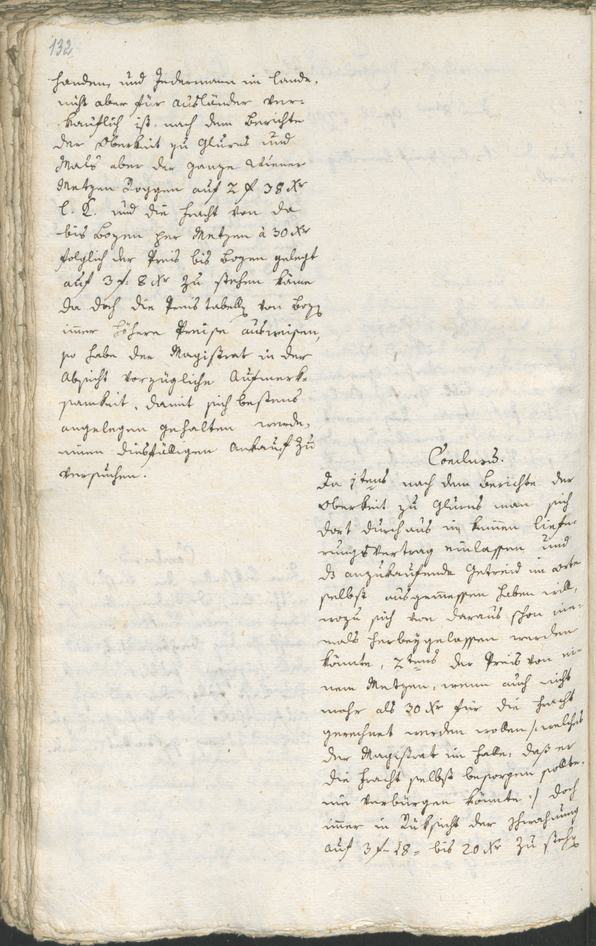 132
handen, und Jedermann im Lande,
nicht aber für Ausländer ver-
kauflich ist, nach dem Berichte
der Oberkeit zu Glurns und
Mals aber der ganze Wiener
Metzen Roggen auf 2 f 38 Xr
und die Fracht von da
bis Bozen per Metzen à 30 Xr
folglich der Preis bis Bozen gelegt
auf 3 f 8 Xr zu stehen käme
da doch die Preistabellen von Bozen
immer höhere Preise ausweisen,
so habe der Magistrat in der
Absicht vorzügliche Aufmerk-
samkeit, damit sich bestens
angelegen gehalten werde,
einen diesfälligen Ankauf zu
versuchen.
Conclusum.
Da 1tens nach dem Berichte der
Oberkeit zu Glurns man sich
dort durchaus in keinen Liefe-
rungsvertrag einlassen und
das anzukaufende Getreid im Orte
selbst ausgemessen haben will,
wozu sich von daraus schon nie-
mals herbeygelassen werden
könnte, 2tens der Preis von ei-
nem Metzen, wenn auch nicht
mehr als 30 Xr für die Fracht
gerechnet werden wollen /: welches
der Magistrat im Falle, daß er
die Fracht selbst besorgen sollte,
nie verbürgen könnte :/ doch
immer in Rüksicht der
auf 3 f 18 bis 20 Xr zu stehen